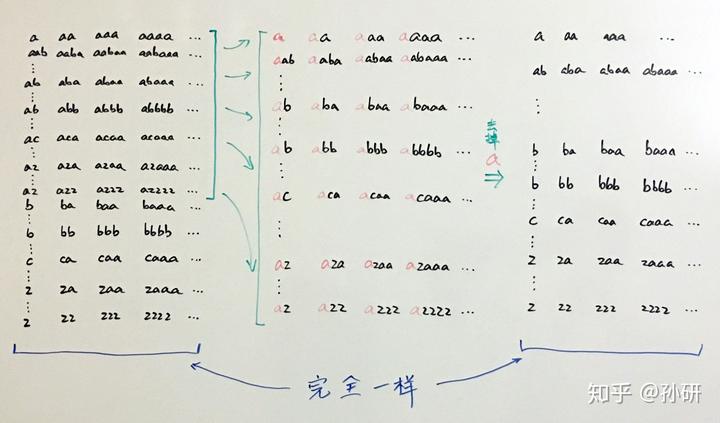 a aa aaa aaaa ...
aab aaba aabaa aabaaa ...
⋮
ab aba abaa abaaa ...
⋮
ab abb abbb abbbb ...
⋮
ac aca acaa acaaa ...
⋮
az aza azaa azaaa ...
⋮
az azz azzz azzzz ...
b ba baa baaa ...
⋮
b bb bbb bbbb ...
⋮
c ca caa caaa ...
⋮
z za zaa zaaa ...
⋮
z zz zzz zzzz ...
a aa aaa aaaa ...
aab aaba aabaa aabaaa ...
⋮
ab aba abaa abaaa ...
⋮
ab abb abbb abbbb ...
⋮
ac aca acaa acaaa ...
⋮
az aza azaa azaaa ...
⋮
az azz azzz azzzz ...
去掉 a
a aa aaa ...
ab aba abaa abaaa ...
⋮
b ba baa baaa ...
⋮
b bb bbb bbbb ...
c ca caa caaa ...
⋮
z za zaa zaaa ...
⋮
z zz zzz zzzz ...
完全一样
知乎 @孙研